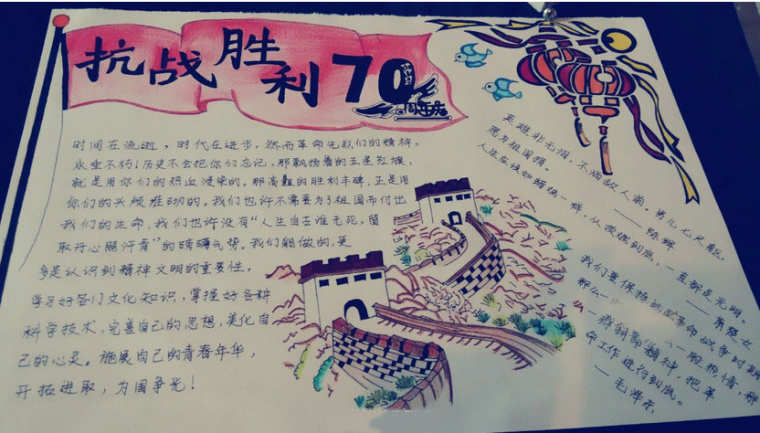 抗战胜利70
周年
时间在流逝，时代在进步，然而革命先烈们的精神，
永垂不朽！历史不会把你们忘记，那飘扬着的五星红旗，
就是用你们的热血浸染的。那高矗的胜利丰碑，正是用
你们的头颅堆砌的。我们也许不需要为了祖国而付出
我们的生命，我们也许没有“人生自古谁无死，留
取丹心照汗青”的磅礴气势。我们能做的，更
多是认识到精神文明的重要性，
学习好各门文化知识，掌握好各种
科学技术，完善自己的思想，美化自
己的心灵。施展自己的青春年华，
开拓进取，为国争光！
英雄非无泪，不洒敌人前。男儿七尺躯，
愿为祖国捐。
——陈辉
人生应该如蜡烛一样，从顶燃到底，一直都是光明。
——萧楚女
我们要保持过去革命战争时期
那么一股热情，那
一种精神，把革
命工作进行到底。
——毛泽东